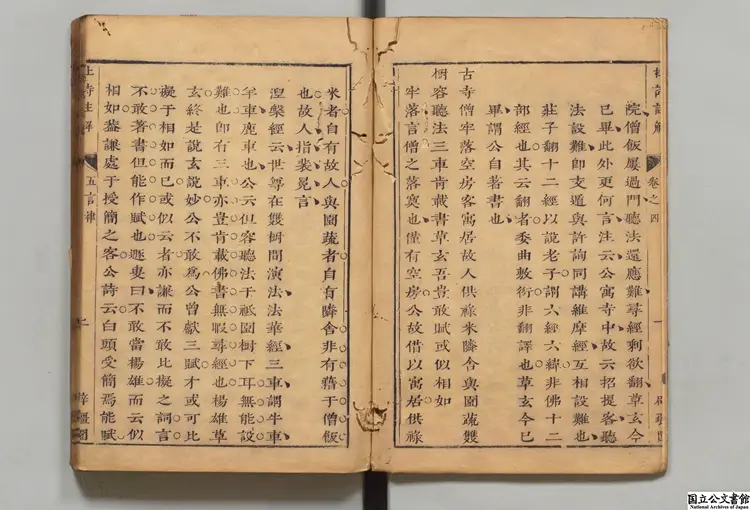 杜詩註解
卷之四
一
院僧飯屢過門聽法還應難尋經剩欲翻草玄今
已畢此外更何言注云公寓寺中故云招提客聽
法設難即支遁與許詢同講維摩經互相設難也
莊子翻十二經以說老子謂六經六緯非佛十二
部經也其云翻者委曲敷衍非翻譯也草玄今已
畢謂公自著書也
古寺僧牢落空房客寓居故人供祿米隣舍與園蔬雙
樹容聽法三車肯載書草玄吾豈敢賦或似相如
牢落言僧之落莫也僅有空房公故借以寓居供祿
米者自有故人與園蔬者自有隣舍非有藉于僧飯
也故人指裴冕言
涅槃經云世尊在雙樹間演法法華經三車謂牛車
羊車鹿車也公云但客聽法于祗園樹下耳無能設
難也即有三車亦豈肯載佛書無暇尋經也楊雄草
玄終是說玄說妙公不敢爲公曾獻三賦才或可比
擬于相如而已或似云者亦謙而不敢比擬之詞言
不敢著書但能作賦也遯叟曰不敢當楊雄而云似
相如葢謙處于授簡之客公詩云白頭受簡焉能賦
上寺主解
五言律
二
国立公文書館
National Archives of Japan